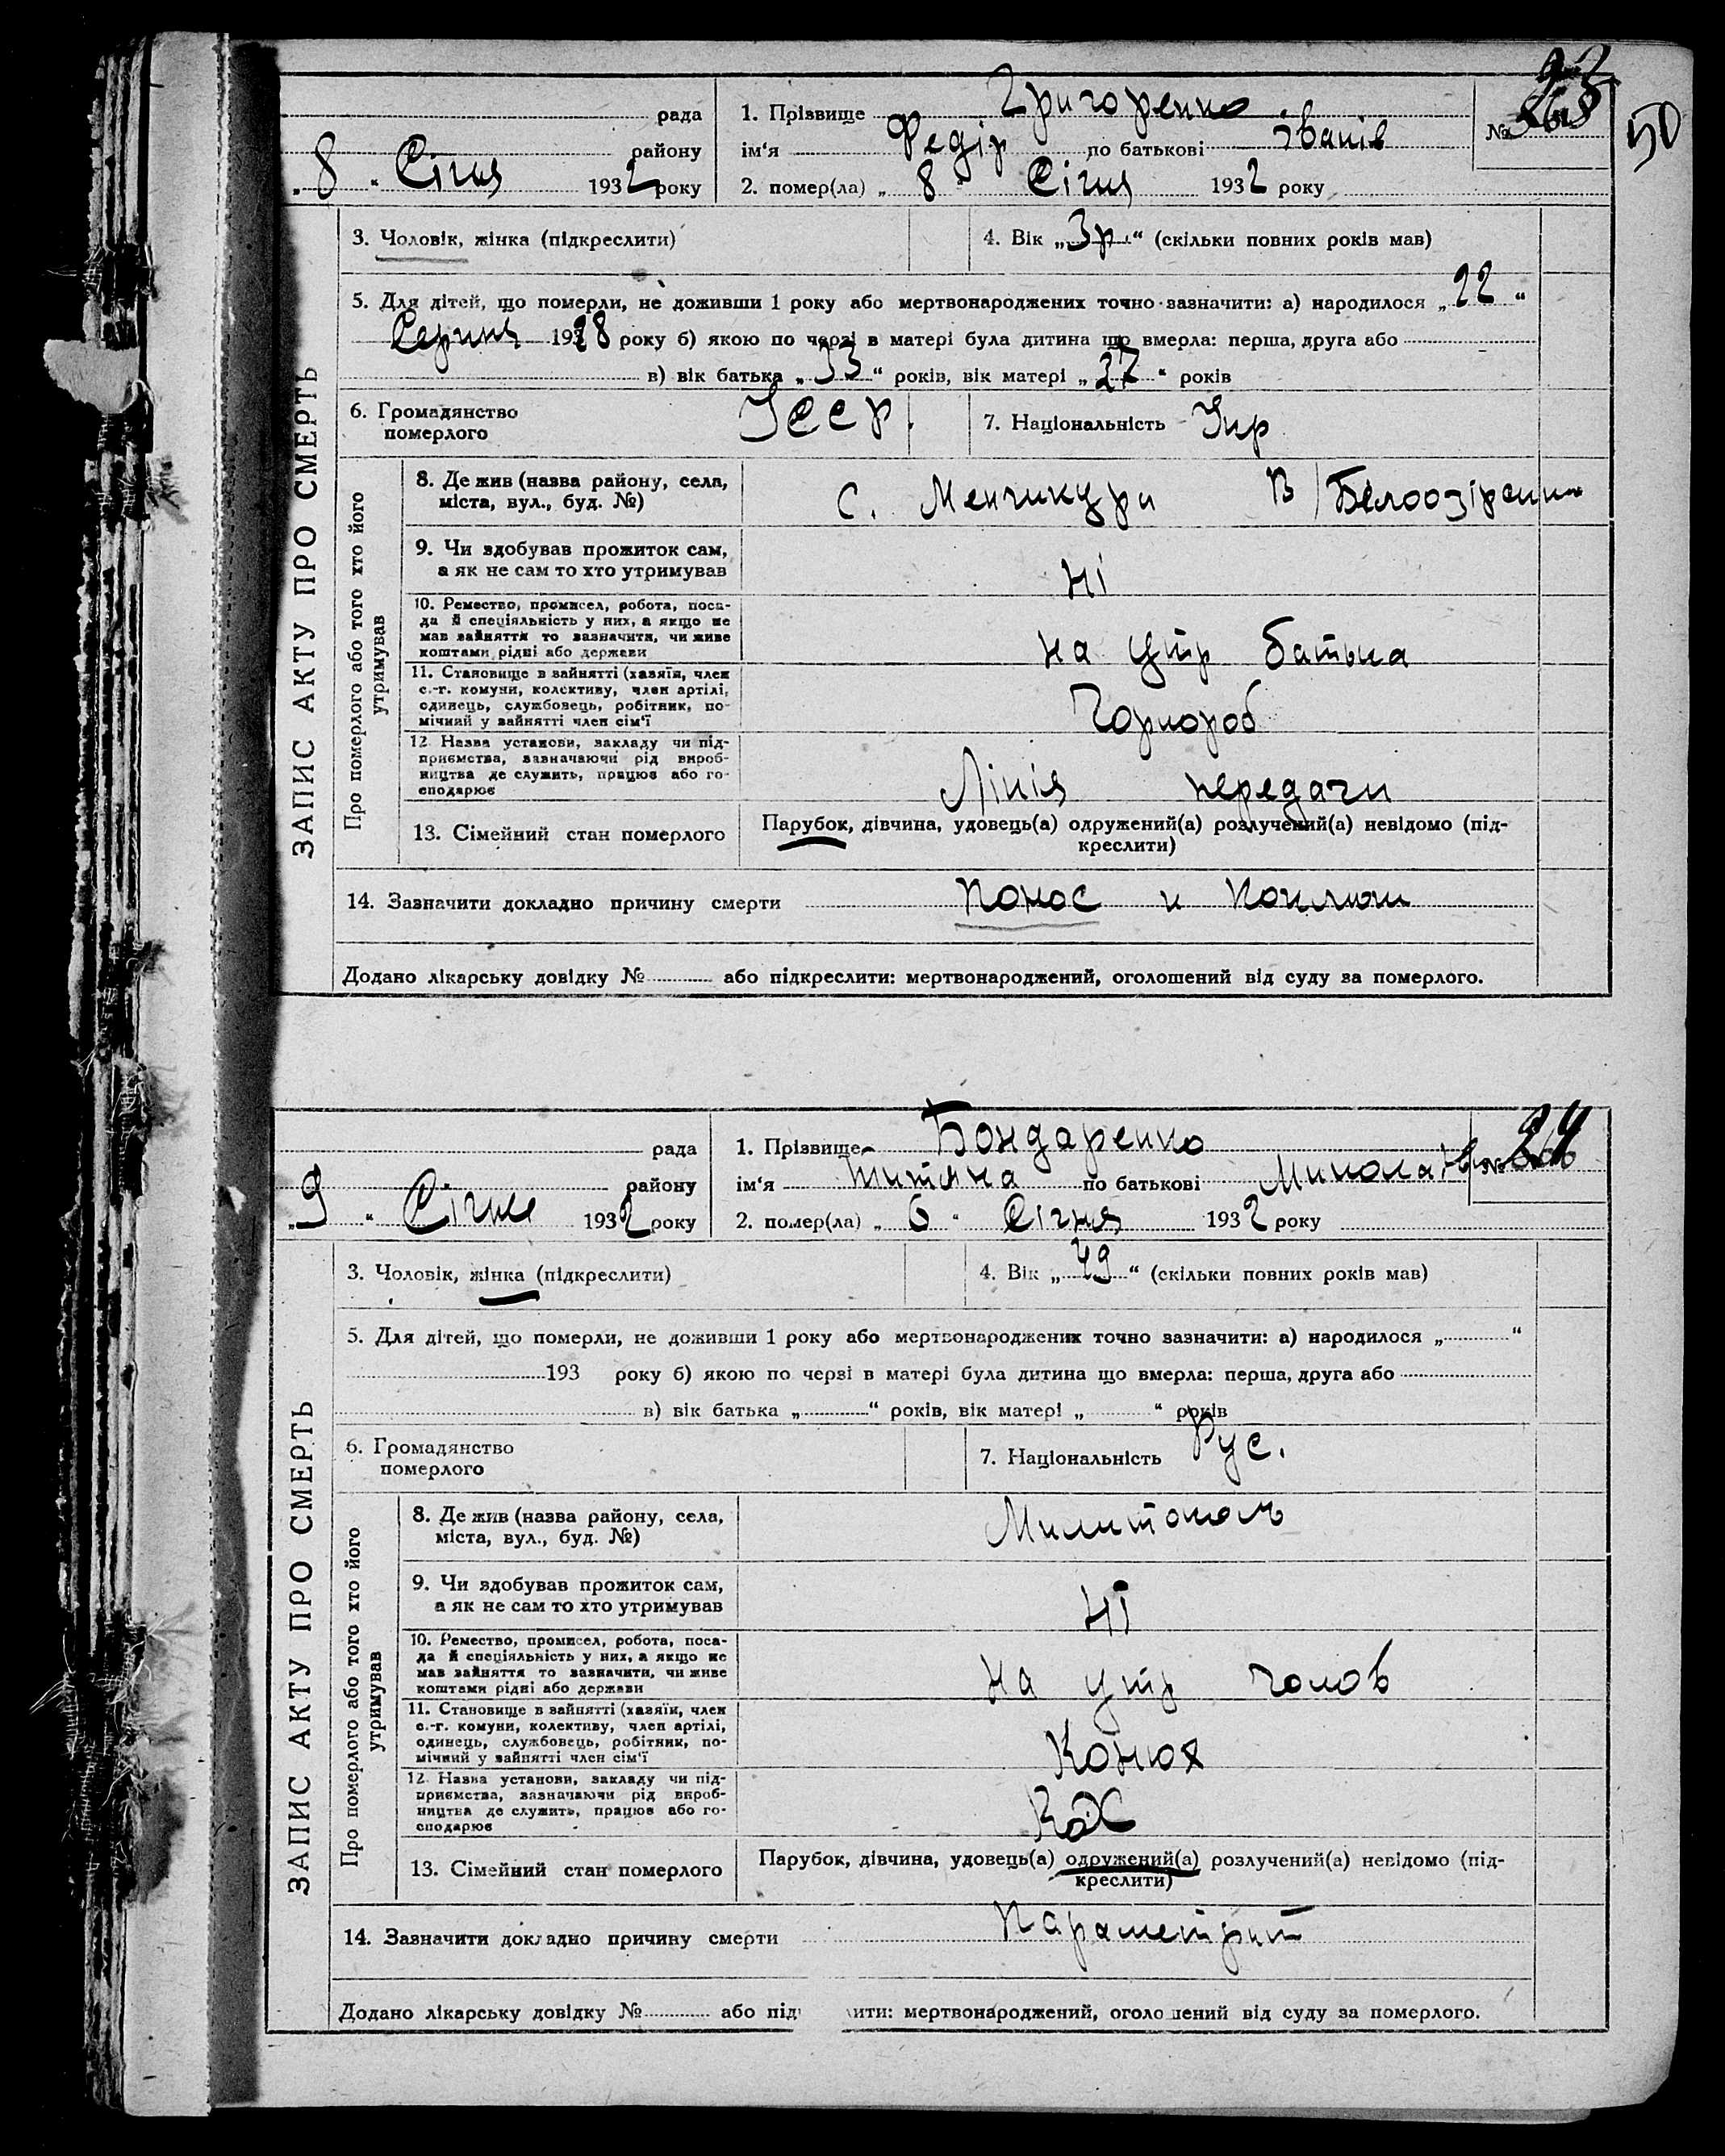 50
рада
району
„8“ Січня 1932 року
1. Прізвище Григоренко
ім‘я Федір по батькові Іванів
№
2. помер(ла) „8“ Січня 1932 року
ЗАПИС АКТУ ПРО СМЕРТЬ
3. Чоловік, жінка (підкреслити)
4. Вік „3р.“ (скільки повних років мав)
5. Для дітей, що померли, не доживши 1 року або мертвонароджених точно зазначити: а) народилося „22“
Серпня 1928 року б) якою по черзі в матері була дитина що вмерла: перша, друга або
в) вік батька „33“ років, вік матері „27“ років
6. Громадянство
померлого
Усср.
7. Національність Укр
Про померлого або того хто його
утримував
8. Де жив (назва району, села,
міста, вул., буд. №)
с. Менчикури В/Білоозірки
9. Чи здобував прожиток сам,
а як не сам то хто утримував
Ні
10. Ремество, промисел, робота, поса-
да й спеціяльність у них, а якщо не
мав зайняття то зазначити, чи живе
коштами рідні або держави
на утр батька
11. Становище в зайнятті (хазяїн, член
с.-г. комуни, колективу, член артілі,
одинець, службовець, робітник, по-
мічний у зайнятті член сім‘ї
Чорнороб
12. Назва установи, закладу чи під-
приємства, зазначаючи рід вироб-
ництва де служить, працює або го-
сподарює
Лінія передачи
13. Сімейний стан померлого
Парубок, дівчина, удовець(а) одружений(а) розлучений(а) невідомо (під-
креслити)
14. Зазначити докладно причину смерти
Понос и Коклюш
Додано лікарську довідку № або підкреслити: мертвонароджений, оголошений від суду за померлого.
рада
району
„9“ Січня 1932 року
1. Прізвище Бондаренко
ім‘я Титяна по батькові Микола
№
2. помер(ла) „6“ Січня 1932 року
ЗАПИС АКТУ ПРО СМЕРТЬ
3. Чоловік, жінка (підкреслити)
4. Вік „49“ (скільки повних років мав)
5. Для дітей, що померли, не доживши 1 року або мертвонароджених точно зазначити: а) народилося „ “
193 року б) якою по черзі в матері була дитина що вмерла: перша, друга або
в) вік батька „ “ років, вік матері „ “ років
6. Громадянство
померлого
7. Національність Рус.
Про померлого або того хто його
утримував
8. Де жив (назва району, села,
міста, вул., буд. №)
Милитополь
9. Чи здобував прожиток сам,
а як не сам то хто утримував
Ні
10. Ремество, промисел, робота, поса-
да й спеціяльність у них, а якщо не
мав зайняття то зазначити, чи живе
коштами рідні або держави
на утр чолов
11. Становище в зайнятті (хазяїн, член
с.-г. комуни, колективу, член артілі,
одинець, службовець, робітник, по-
мічний у зайнятті член сім‘ї
Конюх
12. Назва установи, закладу чи під-
приємства, зазначаючи рід вироб-
ництва де служить, працює або го-
сподарює
13. Сімейний стан померлого
Парубок, дівчина, удовець(а) одружений(а) розлучений(а) невідомо (під-
креслити)
14. Зазначити докладно причину смерти
Параметрит
Додано лікарську довідку № або під ити: мертвонароджений, оголо ений від суду за померлого.